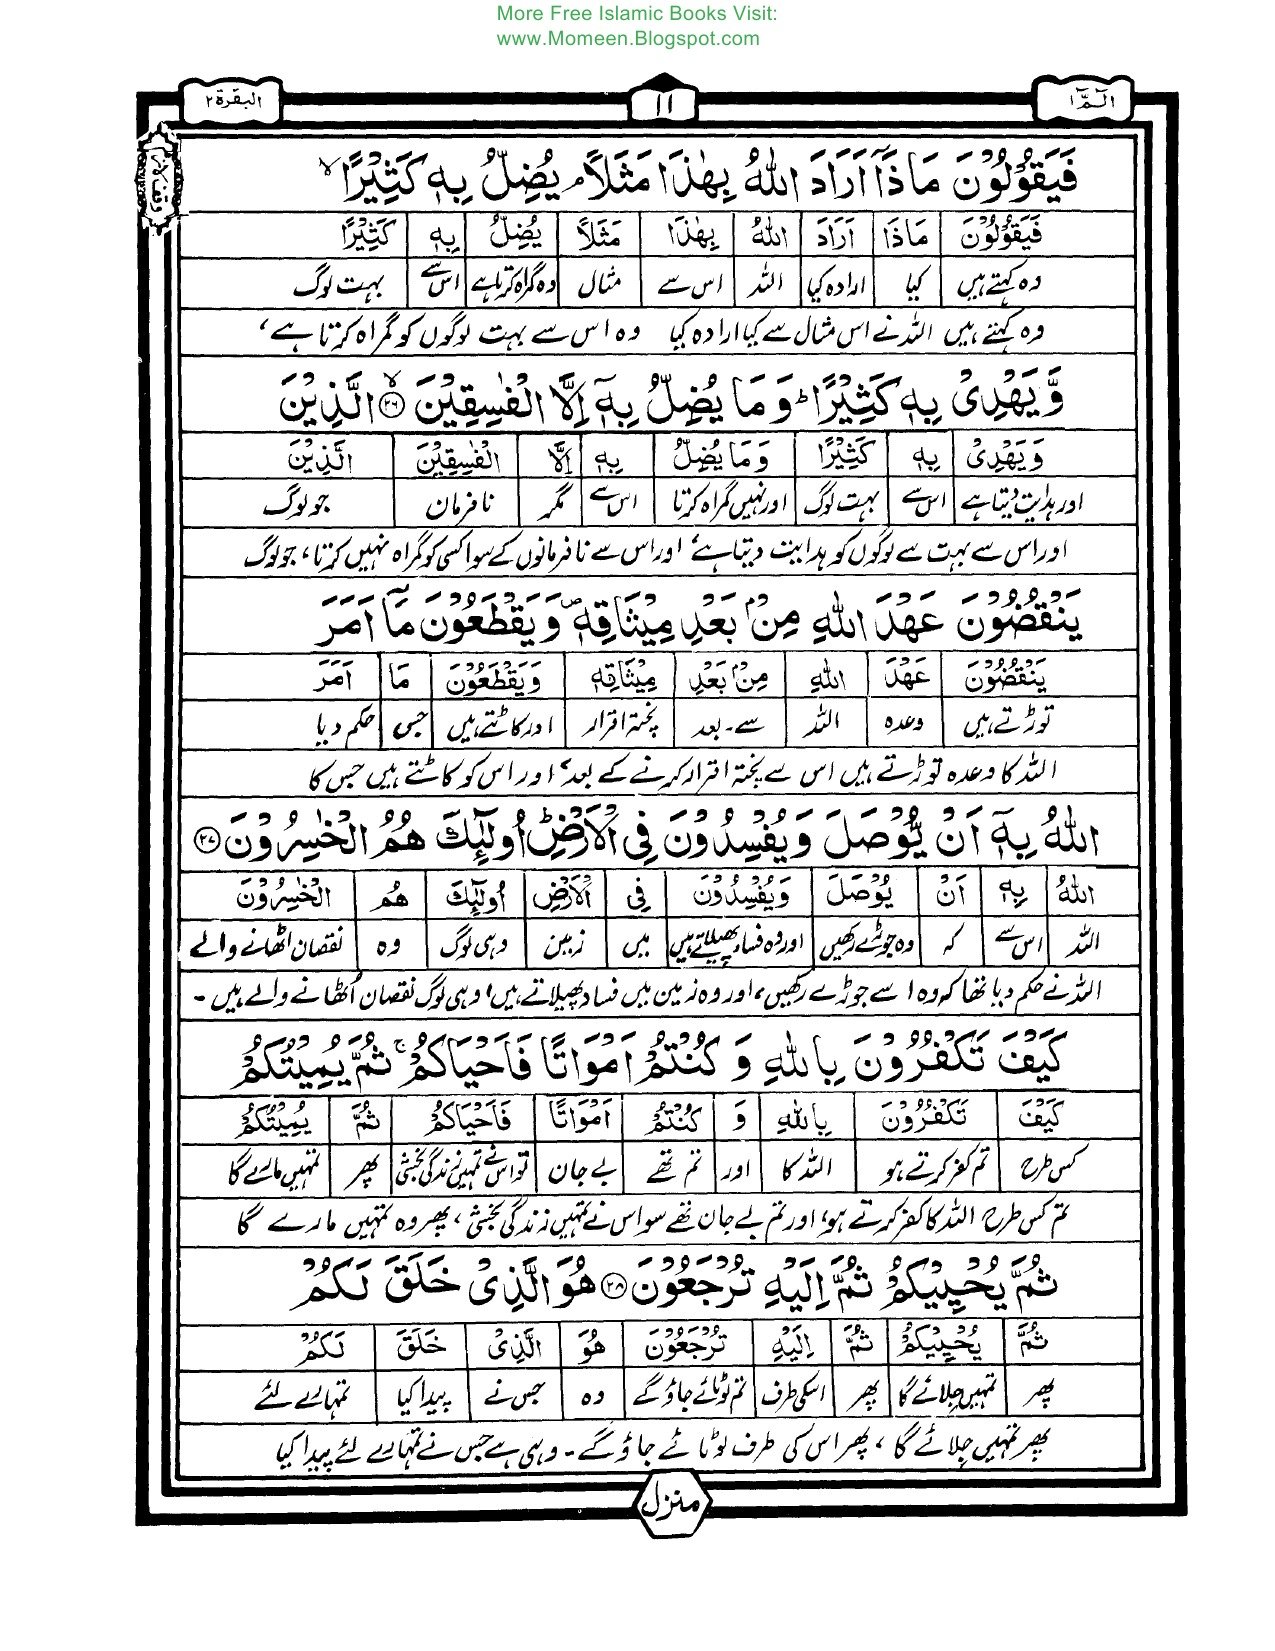 More Free Islamic Books Visit:
www.Momeen.Blogspot.com
الٓمّٓ ١ ١١ البقرة ٢
فَيَقُوْلُوْنَ مَاذَآ اَرَادَ اللّٰهُ بِهٰذَا مَثَلًا ۘ يُضِلُّ بِهٖ كَثِيْرًا ۙ
فَيَقُوْلُوْنَ مَاذَا اَرَادَ اللّٰهُ بِهٰذَا مَثَلًا يُضِلُّ بِهٖ كَثِيْرًا
وہ کہتے ہیں کیا ارادہ کیا اللہ اس سے مثال وہ گمراہ کرتا ہے اس سے بہت لوگ
وہ کہتے ہیں اللہ نے اس مثال سے کیا ارادہ کیا وہ اس سے بہت لوگوں کو گمراہ کرتا ہے،
وَّيَهْدِىْ بِهٖ كَثِيْرًا ؕ وَمَا يُضِلُّ بِهٖٓ اِلَّا الْفٰسِقِيْنَ ۙ‏﴿۲۶﴾ الَّذِيْنَ
وَيَهْدِىْ بِهٖ كَثِيْرًا وَمَا يُضِلُّ بِهٖ اِلَّا الْفٰسِقِيْنَ الَّذِيْنَ
اور ہدایت دیتا ہے اس سے بہت لوگ اور نہیں گمراہ کرتا اس سے مگر نافرمان جو لوگ
اور اس سے بہت سے لوگوں کو ہدایت دیتا ہے، اور اس سے نافرمانوں کے سوا کسی کو گمراہ نہیں کرتا، جو لوگ
يَنْقُضُوْنَ عَهْدَ اللّٰهِ مِنْۢ بَعْدِ مِيْثَاقِهٖ ۪ وَيَقْطَعُوْنَ مَآ اَمَرَ
يَنْقُضُوْنَ عَهْدَ اللّٰهِ مِنْۢ بَعْدِ مِيْثَاقِهٖ وَيَقْطَعُوْنَ مَا اَمَرَ
توڑتے ہیں وعدہ اللہ سے۔ بعد پختہ اقرار اور کاٹتے ہیں جس حکم دیا
اللہ کا وعدہ توڑتے ہیں اس سے پختہ اقرار کرنے کے بعد، اور اس کو کاٹتے ہیں جس کا
اللّٰهُ بِهٖٓ اَنْ يُّوْصَلَ وَيُفْسِدُوْنَ فِى الْاَرْضِ ؕ اُولٰٓئِكَ هُمُ الْخٰسِرُوْنَ ﴿۲۷﴾
اللّٰهُ بِهٖ اَنْ يُوْصَلَ وَيُفْسِدُوْنَ فِى الْاَرْضِ اُولٰٓئِكَ هُمُ الْخٰسِرُوْنَ
اللہ اس سے کہ وہ جوڑے رکھیں اور وہ فساد پھیلاتے ہیں میں زمین وہی لوگ وہ نقصان اٹھانے والے
اللہ نے حکم دیا تھا کہ وہ اسے جوڑے رکھیں، اور وہ زمین میں فساد پھیلاتے ہیں، وہی لوگ نقصان اُٹھانے والے ہیں۔
كَيْفَ تَكْفُرُوْنَ بِاللّٰهِ وَ كُنْتُمْ اَمْوَاتًا فَاَحْيَاكُمْ ۚ ثُمَّ يُمِيْتُكُمْ
كَيْفَ تَكْفُرُوْنَ بِاللّٰهِ وَ كُنْتُمْ اَمْوَاتًا فَاَحْيَاكُمْ ثُمَّ يُمِيْتُكُمْ
کس طرح تم کفر کرتے ہو اللہ کا اور تم تھے بے جان تو اس نے تمہیں زندگی بخشی پھر تمہیں مارے گا
تم کس طرح اللہ کا کفر کرتے ہو، اور تم بے جان تھے سو اس نے تمہیں زندگی بخشی، پھر وہ تمہیں مارے گا
ثُمَّ يُحْيِيْكُمْ ثُمَّ اِلَيْهِ تُرْجَعُوْنَ ﴿۲۸﴾ هُوَ الَّذِىْ خَلَقَ لَكُمْ
ثُمَّ يُحْيِيْكُمْ ثُمَّ اِلَيْهِ تُرْجَعُوْنَ هُوَ الَّذِىْ خَلَقَ لَكُمْ
پھر تمہیں جلائے گا پھر اسکی طرف تم لوٹائے جاؤ گے وہ جس نے پیدا کیا تمہارے لئے
پھر تمہیں جلائے گا، پھر اس کی طرف لوٹائے جاؤ گے۔ وہی ہے جس نے تمہارے لئے پیدا کیا
منزل